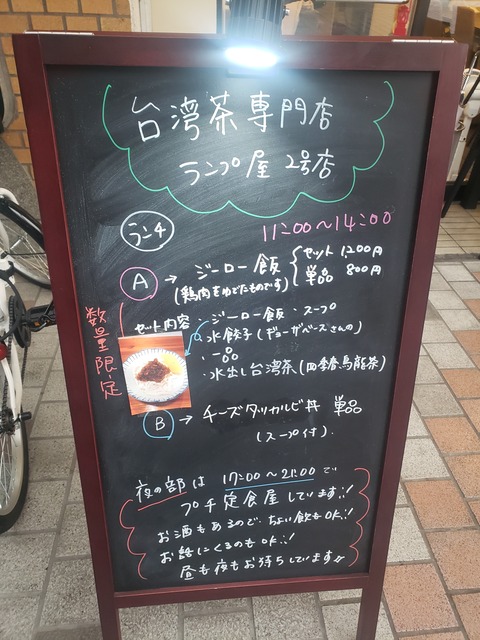 台湾茶専門店
ランプ屋 2号店
ランチ
11:00～14:00
A → ジーロー飯 セット 1,200円
単品 800円
(鶏肉をゆでたものです)
数量限定
セット内容 ・ジーロー飯・スープ
・水餃子(ギョーザベースさんの)
・一品
・水出し台湾茶(四季春烏龍茶)
B → チーズタッカルビ丼 単品
(スープ付)
夜の部は 17:00～21:00で
プチ定食屋しています!!
お酒もあるので、ちょい飲もOK!!
お話にくるのもOK!!
昼も夜もお待ちしています!!